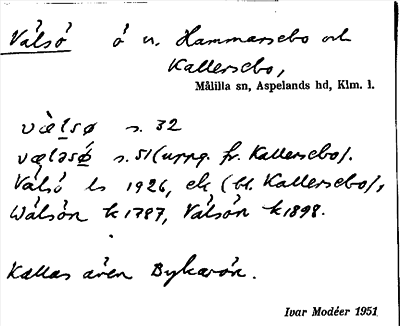 Välsö ö n. Hammarsebo och
Kallersebo,
Målilla sn, Aspelands hd, Klm. l.
vὲlsø s. 32
væləsǿ s. 51 (uppg. fr. Kallersebo).
Välsö ls 1926, ek (bl. Kallersebo),
Wälsön k 1787, Välsön k 1898.
Kallas även Bykarön.
Ivar Modéer 1951